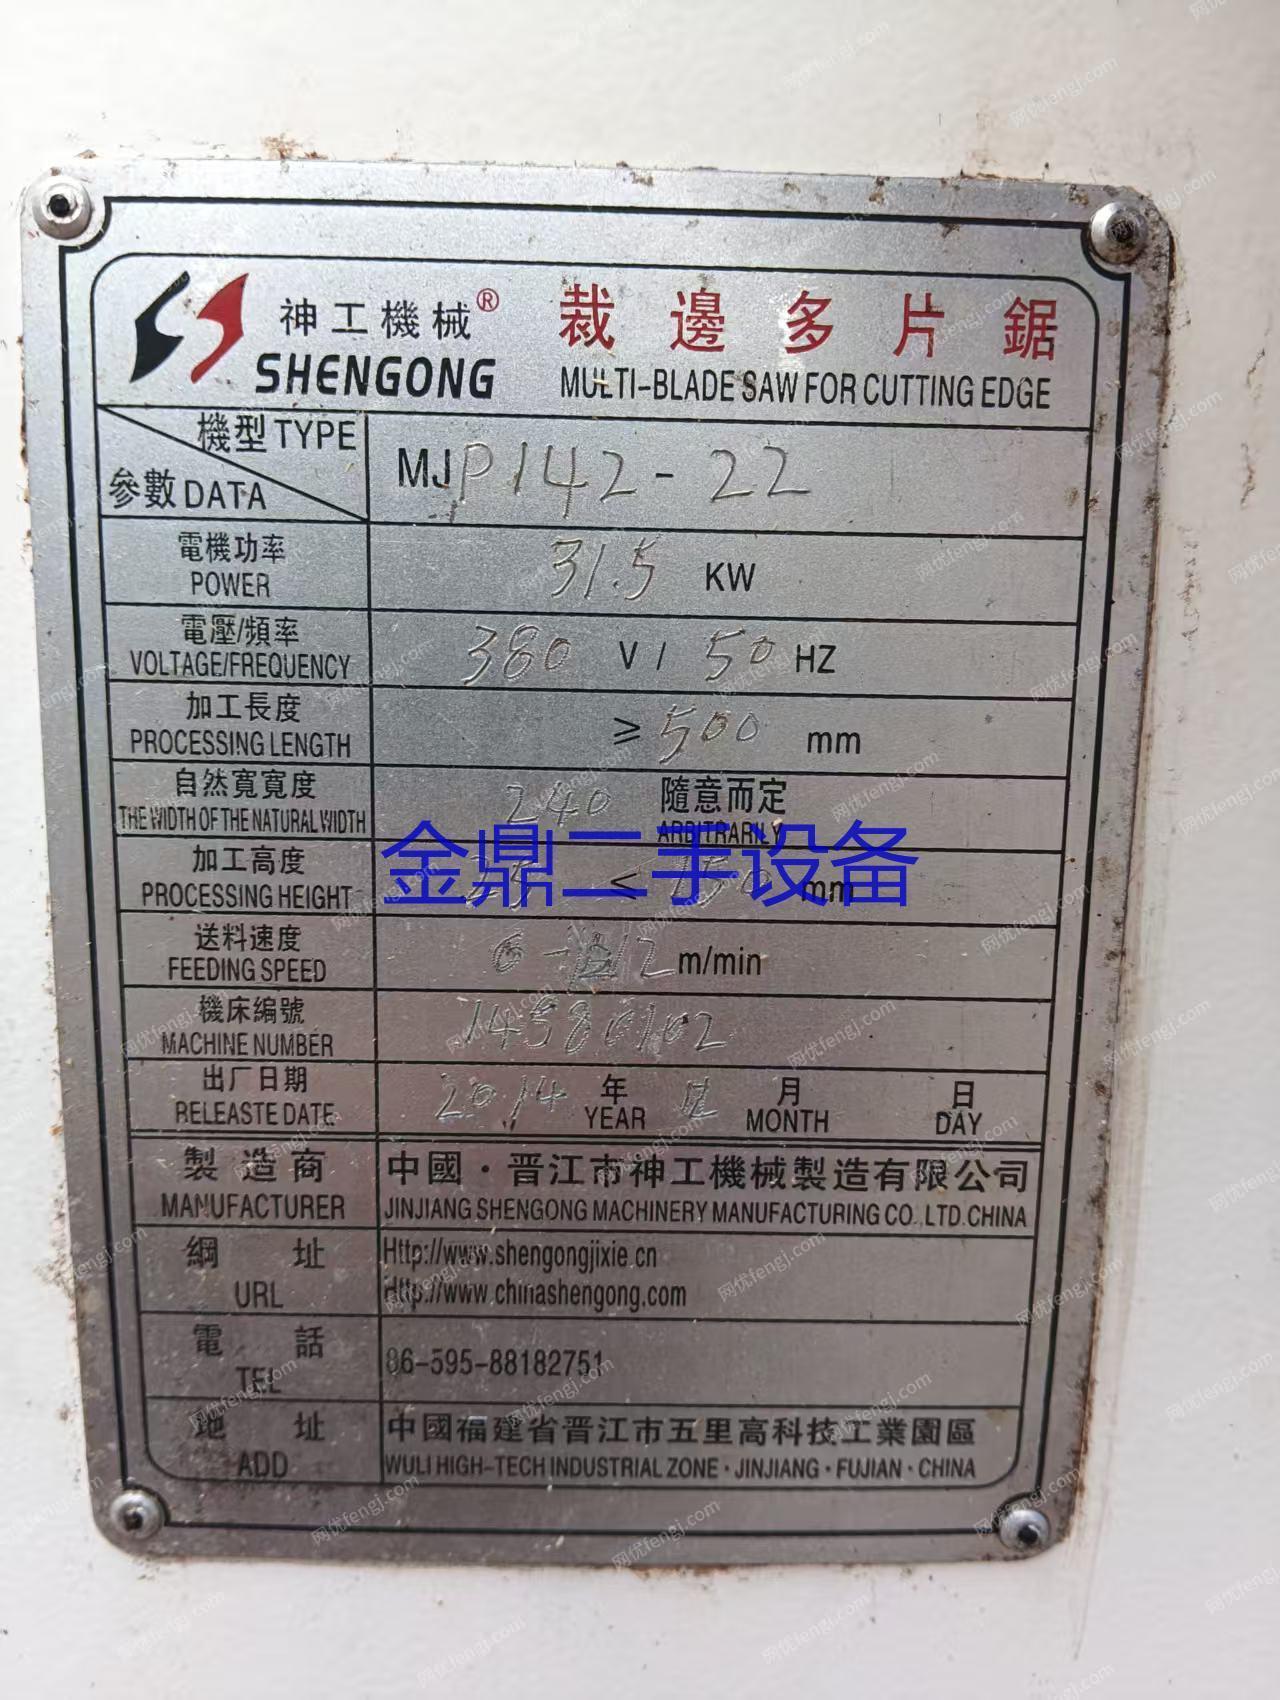 神工機械® 裁邊多片鋸
SHENGONG MULTI-BLADE SAW FOR CUTTING EDGE
機型 TYPE
參數 DATA
MJP142-22
電機功率 31.5 KW
POWER
電壓/頻率 380 V / 50 HZ
VOLTAGE/FREQUENCY
加工長度 ≥500 mm
PROCESSING LENGTH
自然寬寬度 240 隨意而定
THE WIDTH OF THE NATURAL WIDTH ARBITRARILY
金鼎二手设备
加工高度 < 150 mm
PROCESSING HEIGHT
送料速度 m/min
FEEDING SPEED
機床編號 14580102
MACHINE NUMBER
出厂日期 2014 年 月 日
RELEASTE DATE YEAR MONTH DAY
製造商 中國·晋江市神工機械製造有限公司
MANUFACTURER JINJIANG SHENGONG MACHINERY MANUFACTURING CO.,LTD.CHINA
網址 Http://www.shengongjixie.cn
URL Http://www.chinashengong.com
電話 86-595-88182751
TEL
地址 中國福建省晋江市五里高科技工業園區
ADD WULI HIGH-TECH INDUSTRIAL ZONE·JINJIANG·FUJIAN·CHINA
网优fengj.com